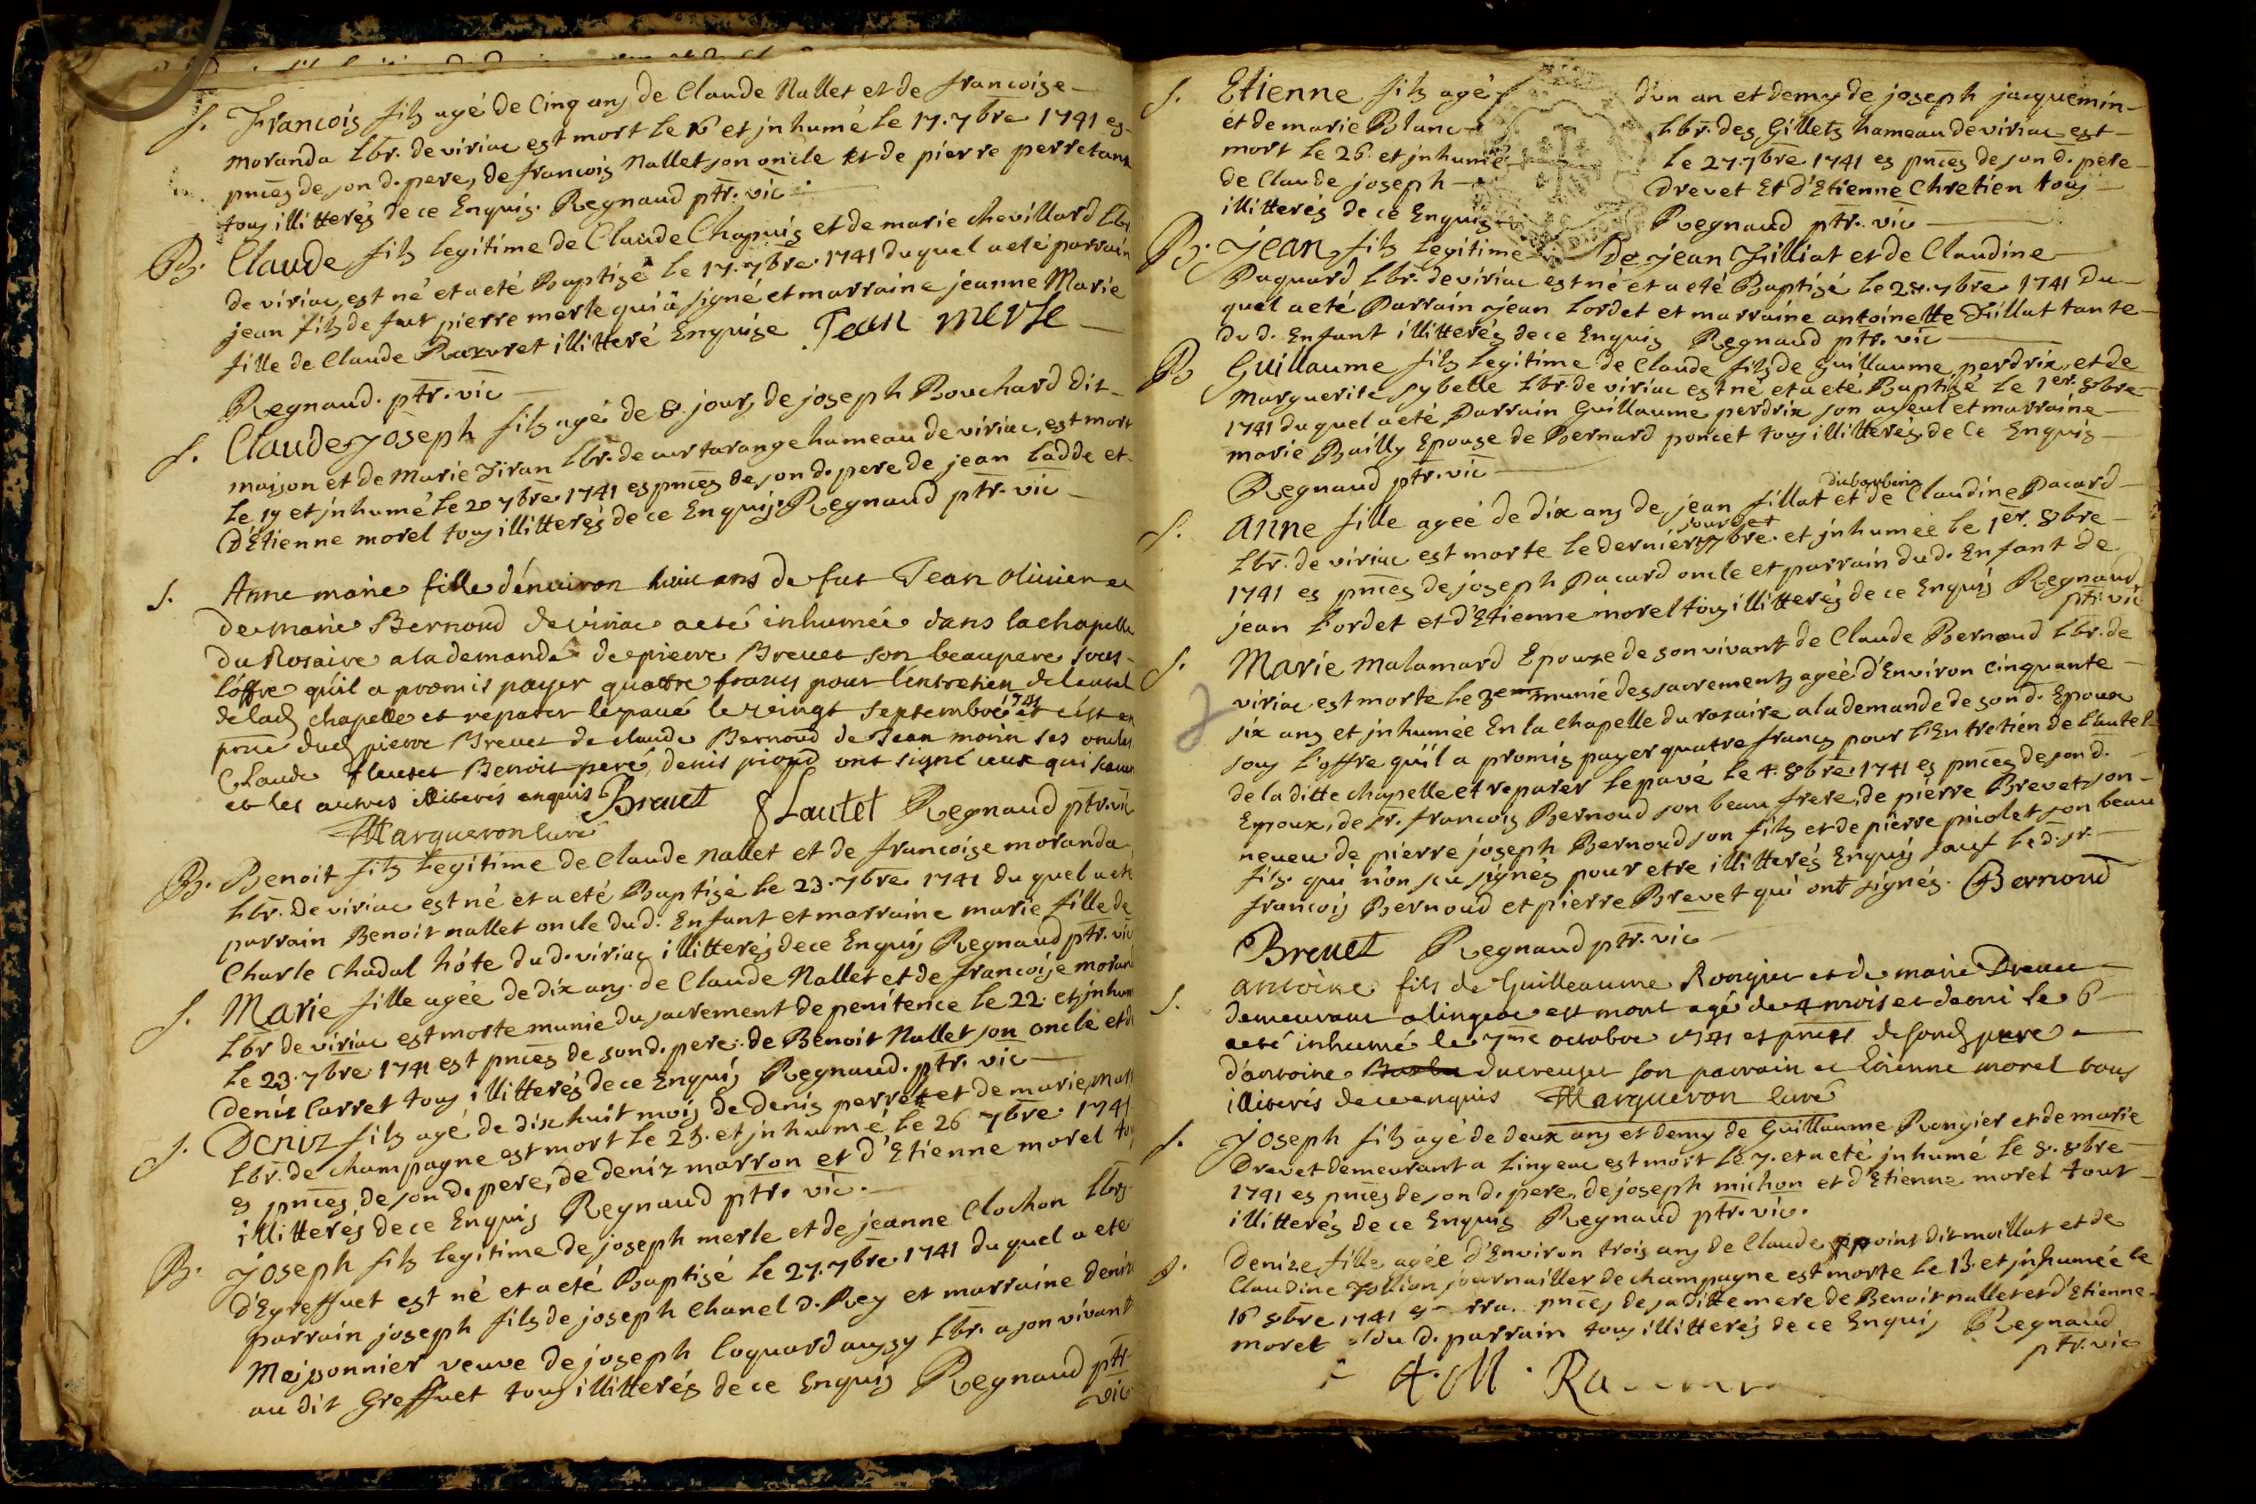 S. François fils agé de Cinq ans de Claude Nallet et de françoise
moranda Lbr. de viriac est mort le 16 et jnhumé le 17. 7bre 1741 es
pnces de son d. pere, de françois Nallet son oncle et de pierre perretant
tous illitterés de ce Enquis. Regnaud ptr. vic
B. Claude fils legitime de Claude Chapuis et de marie chevillard Lbr
de viriac, est né et a eté Baptisé le 17. 7bre. 1741 duquel a eté parrain
jean fils de fut pierre merle qui a signé et marraine jeanne Marie
fille de Claude Raxuret illitteré Enquise Jean merle
Regnaud. ptr. vic
S. Claude joseph fils agé de 8. jours de joseph Bouchard dit
maison et de Marie Tiran Lbr. de curtarange hameau de viriac, est mort
le 19 et jnhumé le 20 7bre 1741 es pnces de son d. pere de jean Ladde et
d'Etienne morel tous illitterés de ce Enquis Regnaud ptr. vic
S. Anne marie fille d'enuiron huic ans de fut Jean oliuier et
de marie Bernoud de viriac a eté inhumée dans la chapelle
du Rosaire a la demande de pierre Breuet son beaupere sous
l'offre qu'il a promis payer quattre francs pour l'entretien de l'autel
de lad chapelle et reparer le paué le vingt septembre 1741 et c'est en
pnce dud pierre Breuet de claude Bernoud de Jean morin ses oncles
Claude fleutet Benoit peré, denis prioud ont signé ceux qui sceu
et les autres illiterés enquis Breuet f Lautet Regnaud ptr. vic
Margueron curé
B. Benoit fils legitime de Claude nallet et de françoise moranda
Lbr. de viriac est né et a eté Baptisé le 23. 7bre 1741 du quel a eté
parrain Benoit nallet oncle dud. Enfant et marraine marie fille de
Charle Chadal hôte du d. viriac illitterés de ce Enquis Regnaud ptr. vic
S. Marie fille agée de dix ans de Claude Nallet et de françoise moran
Lbr de viriac est morte munie du sacrement de penitence le 22. et jnhum
le 23. 7bre 1741 est pnces de son d. pere. de Benoit Nallet son oncle et de
Denis Carret tous illitterés de ce Enquis Regnaud. ptr. vic
S. Deniz fils agé de dix huit mois de Denis perret et de marie Mat
Lbr. de champagne est mort le 25. et jnhumé le 26 7bre 1741
es pnces de son d. pere, de deniz marron et d'Etienne morel to
illitterés de ce Enquis Regnaud ptr. vic.
B. joseph fils legitime de joseph merle et de jeanne Clochon Lbrs
d'Egreffuet est né et a eté Baptisé le 27. 7bre 1741 du quel a eté
parrain joseph fils de joseph Chanel d. Rey et marraine Deniz
Maisonnier veuve de joseph Coquard aussy Lbr. a son vivant
au dit Greffuet tous illitterés de ce Enquis Regnaud ptr.
vic
S. Etienne fils agé d'un an et demy de joseph jacquemin
et de marie Blanc Lbr. des Gillets hameau de viriac est
mort le 26. et jnhumé le 27. 7bre 1741 es pnces de son d. pere
de Claude joseph Drevet Et d'Etienne Chretien tous
illitterés de ce Enquis Regnaud ptr. vic
B. jean fils legitime de jean Filliat et de Claudine
Paquard Lbr. de viriac est né et a eté Baptisé le 28. 7bre 1741 du
quel a eté Parrain jean Lordet et marraine antoinette Fillat tante
du d. Enfant illitterés de ce Enquis Regnaud ptr. vic
B Guillaume fils legitime de Claude fils de Guillaume perdrix, et de
Marguerite sybelle Lbr. de viriac est né et a eté Baptisé le 1er. 8bre
1741 du quel a eté Parrain Guillaume perdrix son ayeul et marraine
marie Bailly Epouse de Bernard poncet tous illitterés de ce Enquis
Regnaud ptr. vic
S. Anne fille ageé de dix ans de jean fillat et de Claudine Pacard
Lbr. de viriac est morte le dernier 7bre. et jnhumée le 1er. 8bre
1741 es pnces de joseph Pacard oncle et parrain du d. Enfant de
jean Lordet et d'Etienne morel tous illitterés de ce Enquis Regnaud
ptr. vic
S. Marie Malamard Epouse de son vivant de Claude Bernoud Lbr. de
viriac est morte le 3em munie des sacrements ageé d'Environ cinquante
six ans et jnhumée En la chapelle du rosaire a la demande de son d. Epoux
sous l'offre qu'il a promis payer quatre francs pour l'Entretien de l'autel
de la ditte chapelle et reparer le pavé le 4. 8bre 1741 es pnces de son d.
Epoux, de sr. françois Bernoud son beau frere, de pierre Brevet son
neveu de pierre joseph Bernoud son fils et de pierre picolet son beau
fils. qui n'on scu signés pour etre illitterés Enquis sauf le d. sr.
françois Bernoud et pierre Brevet qui ont signés. Bernoud
Breuet Regnaud ptr. vic
S. antoine fils de Guilleaume Rongier et de marie Dreuet
demeurant a lingeac est mort agé de 4 mois et demi le 6
a eté inhumé le 7me octobre 1741 es pnces de sond pere
d'antoine ducreuzet son parrain et Etienne morel tous
illiterés de ce enquis Margueron curé
S. joseph fils agé de deux ans et demy de Guillaume Rongier et de marie
Drevet demeurant a Lingeac est mort le 7. et a eté jnhumé le 8. 8bre
1741 es pnces de son d. pere, de joseph michon et d'Etienne morel tout
illitterés de ce Enquis Regnaud ptr. vic.
S. Denize fille agée d'Environ trois ans de Claude point dit maillat et de
Claudine journallier de champagne est morte le 15. et jnhumée le
16 8bre 1741 pnces de sa ditte mere de Benoit nallet et d'Etienne
morel du d. parrain tous illitterés de ce Enquis Regnaud
ptr. vic